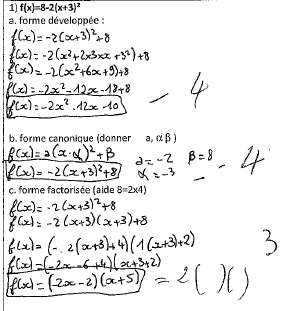 1) f(x)=8-2(x+3)²
a. forme développée :
f(x)=-2(x+3)²+8
f(x)=-2(x²+2x3xx+3²)+8
f(x)=-2(x²+6x+9)+8
f(x)=-2x²-12x-18+8
f(x)=-2x²-12x-10
- 4
b. forme canonique (donner a, α β )
f(x)=a(x-α)²+β a=-2 β=8
f(x)=-2(x+3)²+8 α=-3
- 4
c. forme factorisée (aide 8=2x4)
f(x)=-2(x+3)²+8
f(x)=-2(x+3)(x+3)+8
f(x)=(-2(x+3)+4)(1(x+3)+2)
3
f(x)=(-2x-6+4)(x+3+2)
f(x)=(-2x-2)(x+5) = 2( )( )